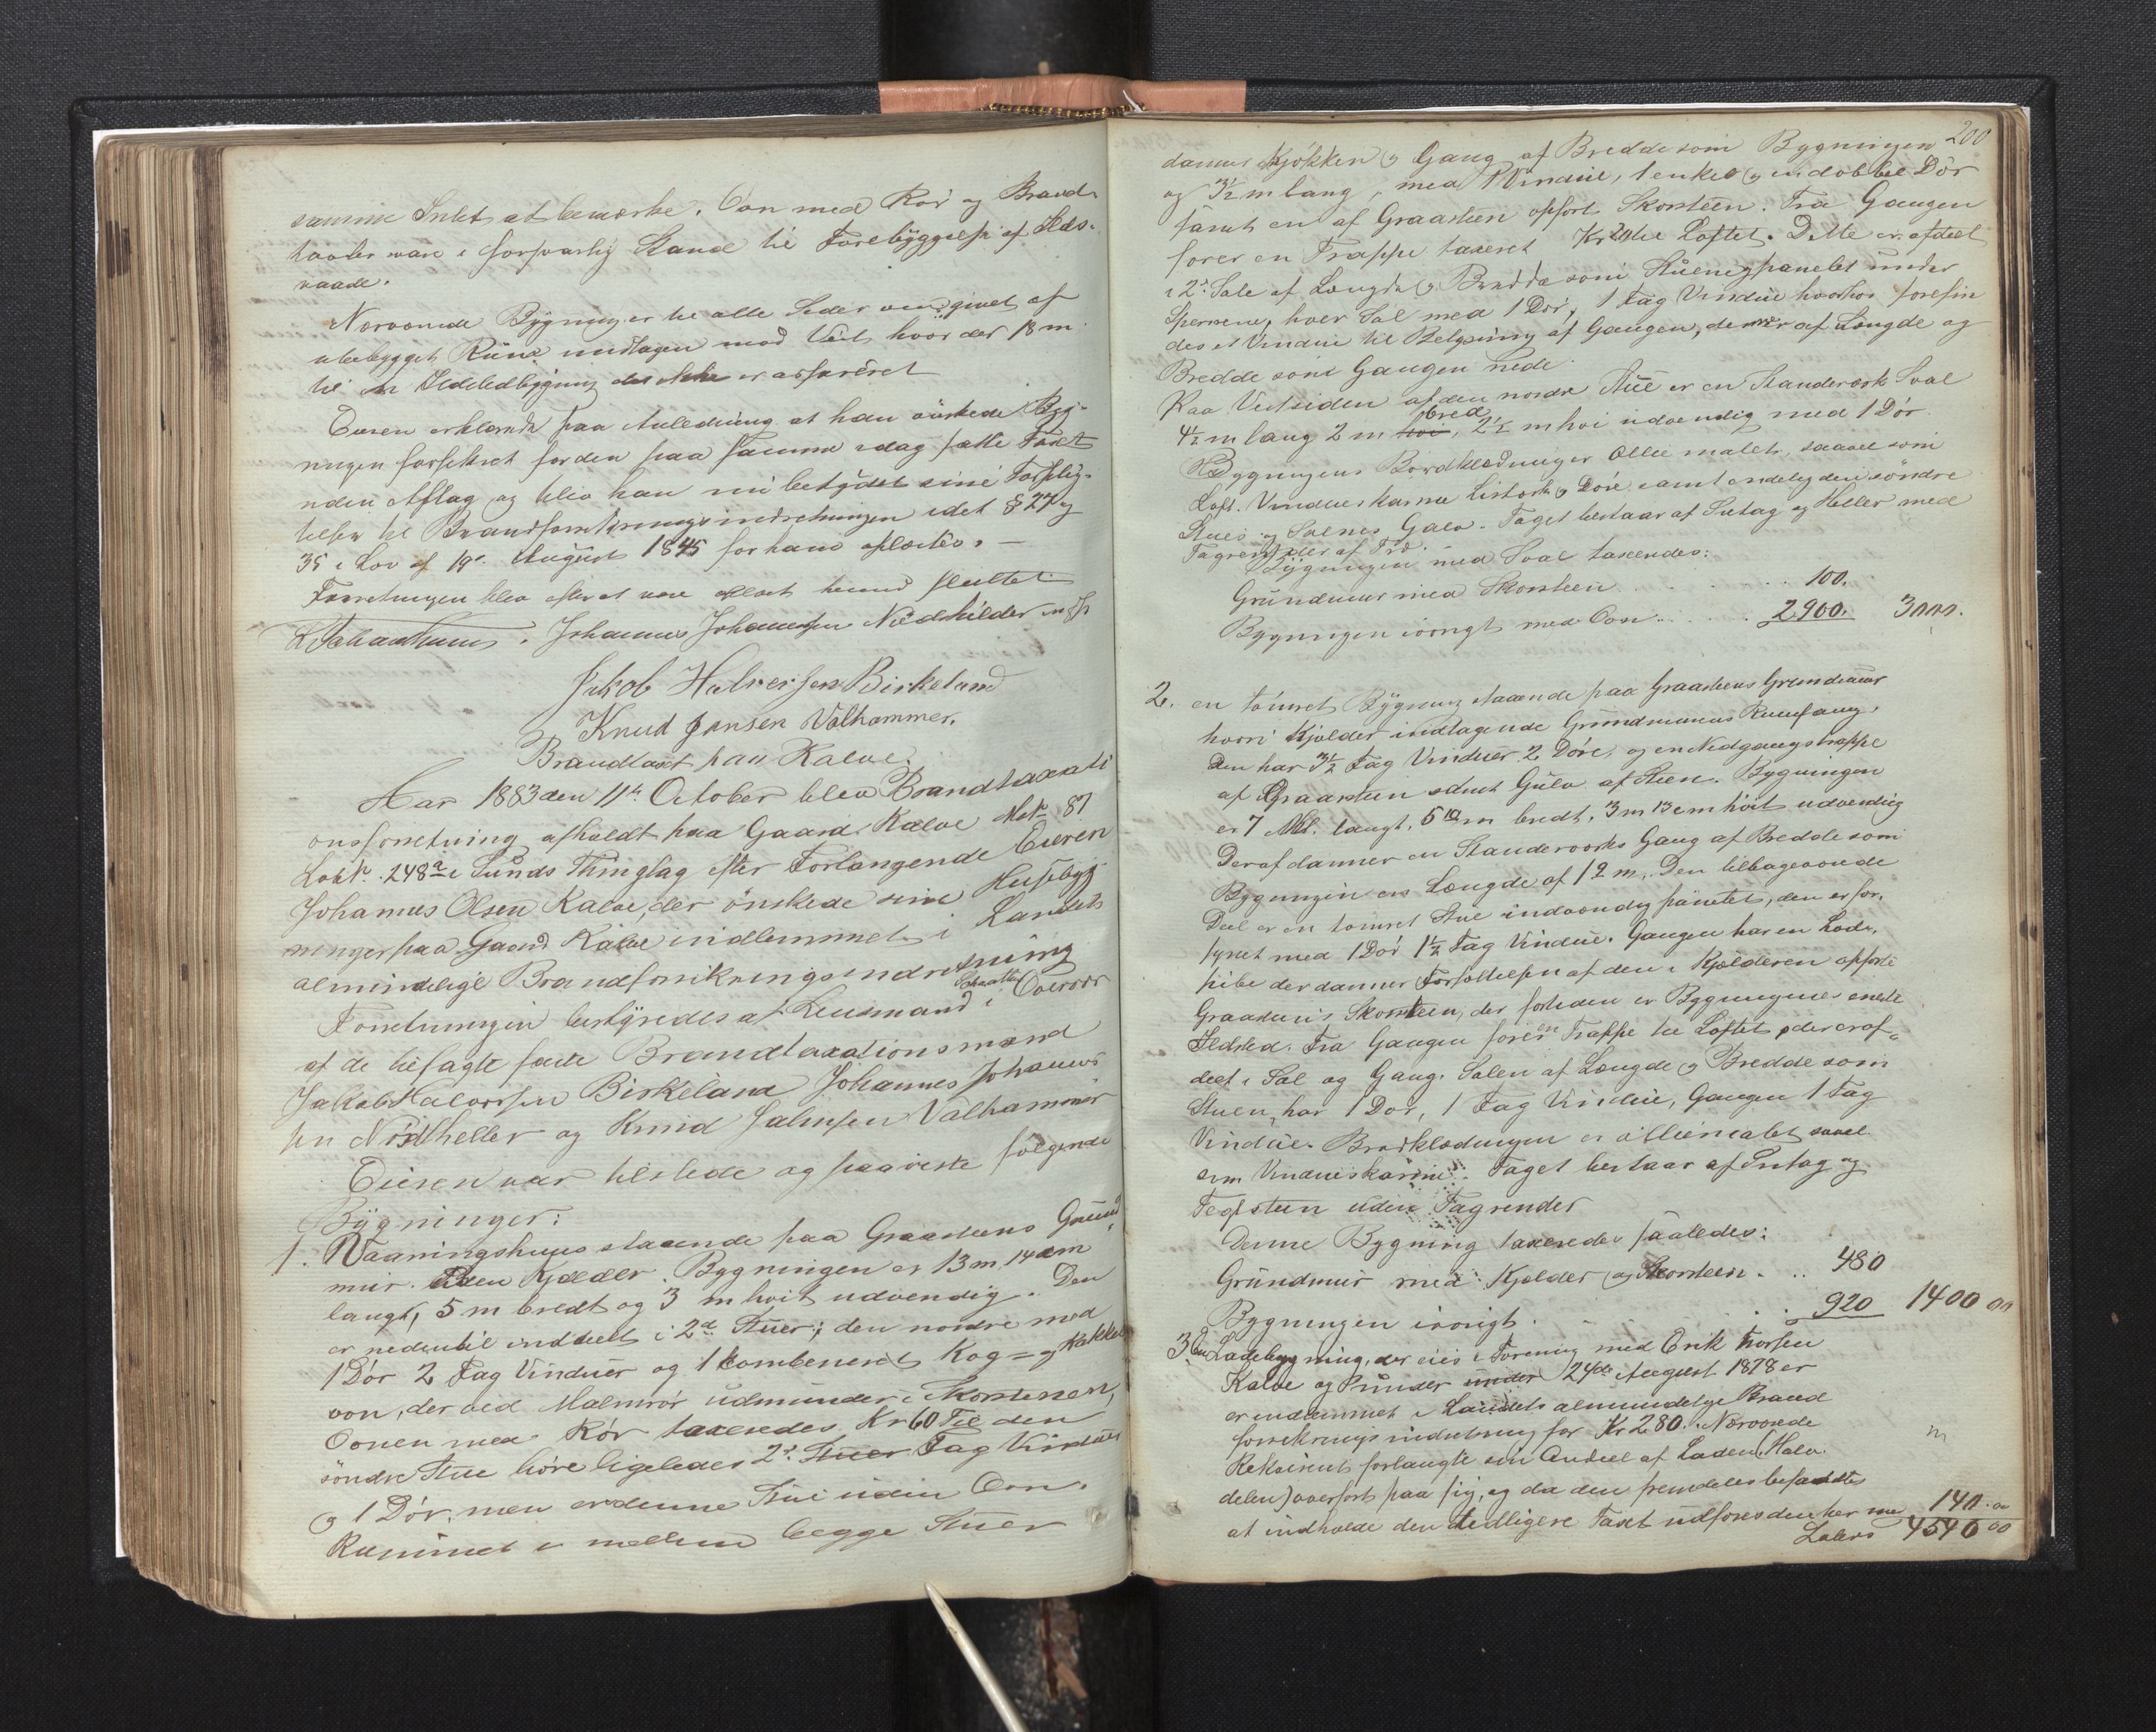 samme Intet at bemærke. Ovn med Rör og Brand-
taarter vare i forsvarlig Stand til Forebyggelse af Ilds-
vaade.
Nærværende Bygning er til alle Sider omgivet af
ubebygget Rum undtagen mod Vest, hvor der 18 m
til en Ildstedbygning der ikke er assureret
Eieren erklærede paa Anledning at han önskede Byg-
ningen forsikret for den paa samme idag satte Taxt
uden Afslag og blev han nu betydet sine Forplig-
telser til Brandforsikringsindretningen idet § 27 og
35 i Lov af 19de August 1845 for ham oplæstes. —
Forretningen blev efter at være oplæst hermed sluttet
Johannes Johannessen m. p.
Jakob Halversen Birkeland
Knud Jansen Valhammer.
Brandtaxt paa Kalve.
Aar 1883 den 11te October blev Brandtaxati
onsforretning afholdt paa Gaard Kalve Mat No 87
Løb No. 248a i Sunds Thinglag efter Forlangende Eieren
Johannes Olsen Kalve, der önskede sine Husebyg-
ninger paa Gaard Kalve indlemmet i Landets
almindelige Brandforsikringsindretning
Forretningen bestyredes af Lensmand i Overvær
af de befagte faste Brandtaxationsmænd
Jakob Halvorsen Birkeland Johannes Johannes
sen og Knud Johnsen Valhammer
Eieren var tilstede og paaviste følgende
Bygninger:
1. Vaaningshuus staaende paa Graasteens Grund
muur. Uden Kjælder. Bygningen er 13 m 14 cm
langt, 5 m bredt og 3 m höit udvendig. Den
er nedentil inddeelt i 2de Stuer; den nordre med
1 Dör 2 Fag Vinduer og 1 kombeneret Kog- og Kakkel
ovn, der ved Malmrör udmunder i Skorstenen,
Ovnen med Rör taxeredes Kr 60 Til den
söndre Stue höre ligeledes 2de Stuer Fag Vinduer
og 1 Dör, men er denne Stue uden Ovn.
Rummet i mellem begge Stuer
200
danner Kjökken og Gang af Bredde som Bygningen
og 3½ m lang, med 1 Vindue, 1 enkel og en dobbel Dör
samt en af Graasteen opfört Skorsteen. Fra Gangen
förer en Trappe taxeret Kr 20 til Loftet. Dette er afdeel
i 2de Sale af Længde og Bredde som Stuene, panelet under
Sperrene, hver Sal med 1 Dör, 1 Fag Vindue hvorhos forefin
des et Vindue til Belysning af Gangen, der er af Længde og
Bredde som Gangen nede
Paa Vestsiden af den nordre Stue er en Standværk Sval
4½ m lang 2 m höi bred, 2½ m höi udvendig med 1 Dör.
Bygningens Bordklædninger Ollie malet, saavel som
Loft. Vindueskarme Listværk og Döre samt endelig den söndre
Stues og Salenes Gulv. Taget bestaar af Sutag og Heller med
Tagrender af Træ.
Bygningen med Sval taxeredes:
Grundmuur med Skorsteen . . . . 100.
Bygningen iövrigt med Ovn . . . . 2900. 3000.
2. en tömret Bygning staaende paa Graasteens Grundmuur
hvori Kjelder indtagende Grundmurens Rumfang,
Den har 3½ Fag Vinduer 2 Döre, og en Nedgangstrappe
af Graasteen samt Gulv af Steen. Bygningen
er 7 Met. langt, 5 m bredt, 3 m 13 cm höit udvendig
Deraf danner en Standværks Gang af Bredde som
Bygningen en Længde af 1 2 m. Den tilbageværende
Deel er en tömret Stue indvendig panelet, den er for-
synet med 1 Dör 1½ Fag Vindue. Gangen har en Lod-
pibe der danner Forsættelsen af den i Kjælderen opförte
Graasteens Skorsteen, der forleden er Bygningens eneste
Ildsted. Fra Gangen förer en Trappe til Loftet, der er af-
deelt i Sal og Gang. Salen af Længde og Bredde som
Stuen, har 1 Dör, 1 Fag Vindue, Gangen 1 Fag
Vindue. Bordklædningen er olliemalet saavel
som Vindueskarme. Taget bestaar af Sutag og
Teglsteen uden Tagrender
Denne Bygning taxeredes saaledes:
Grundmuur med Kjelder og Skorsteen . . . 480
Bygningen iövrigt . . . . 920 1400 00
3. En Ladebygning, der eies i Forening med Erik Thorsen
Kalve og under under 24de August 1878 er
er indlemmet i Landets almindelige Brand
forsikringsindretning for Kr 280. Nærværede
Rekvirent forlangte sin Andeel af Laden (Halv-
delen) overfört paa sig, og da den fremdeles befandtes
at indholde den tidligere Taxt udföres den her med 140.00
Latus 4540 00